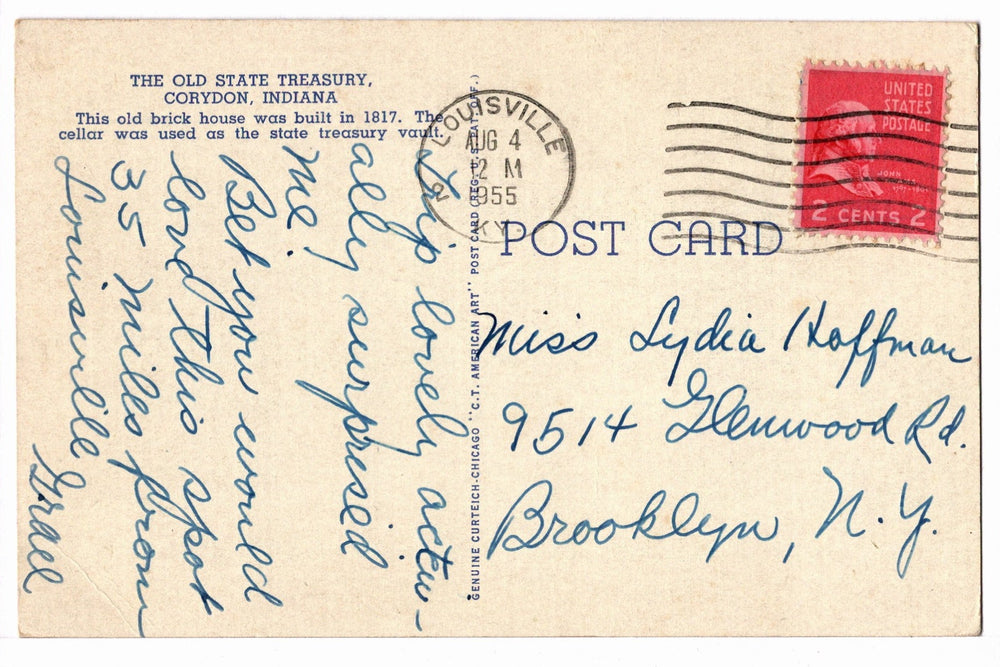 THE OLD STATE TREASURY,
CORYDON, INDIANA
This old brick house was built in 1817. The
cellar was used as the state treasury vault.
trip lovely actu-
ally surpresed
me.
Bet you would
love this spot
35 miles from
Louisville
Grace
GENUINE CURTEICH-CHICAGO "C.T. AMERICAN ART" POST CARD (REG. U.S. PAT. OFF.)
LOUISVILLE
AUG 4
12 M
1955
KY
2
UNITED
STATES
POSTAGE
JOHN
2 CENTS 2
POST CARD
Miss Lydia Hoffman
9514 Glenwood Rd.
Brooklyn, N.Y.